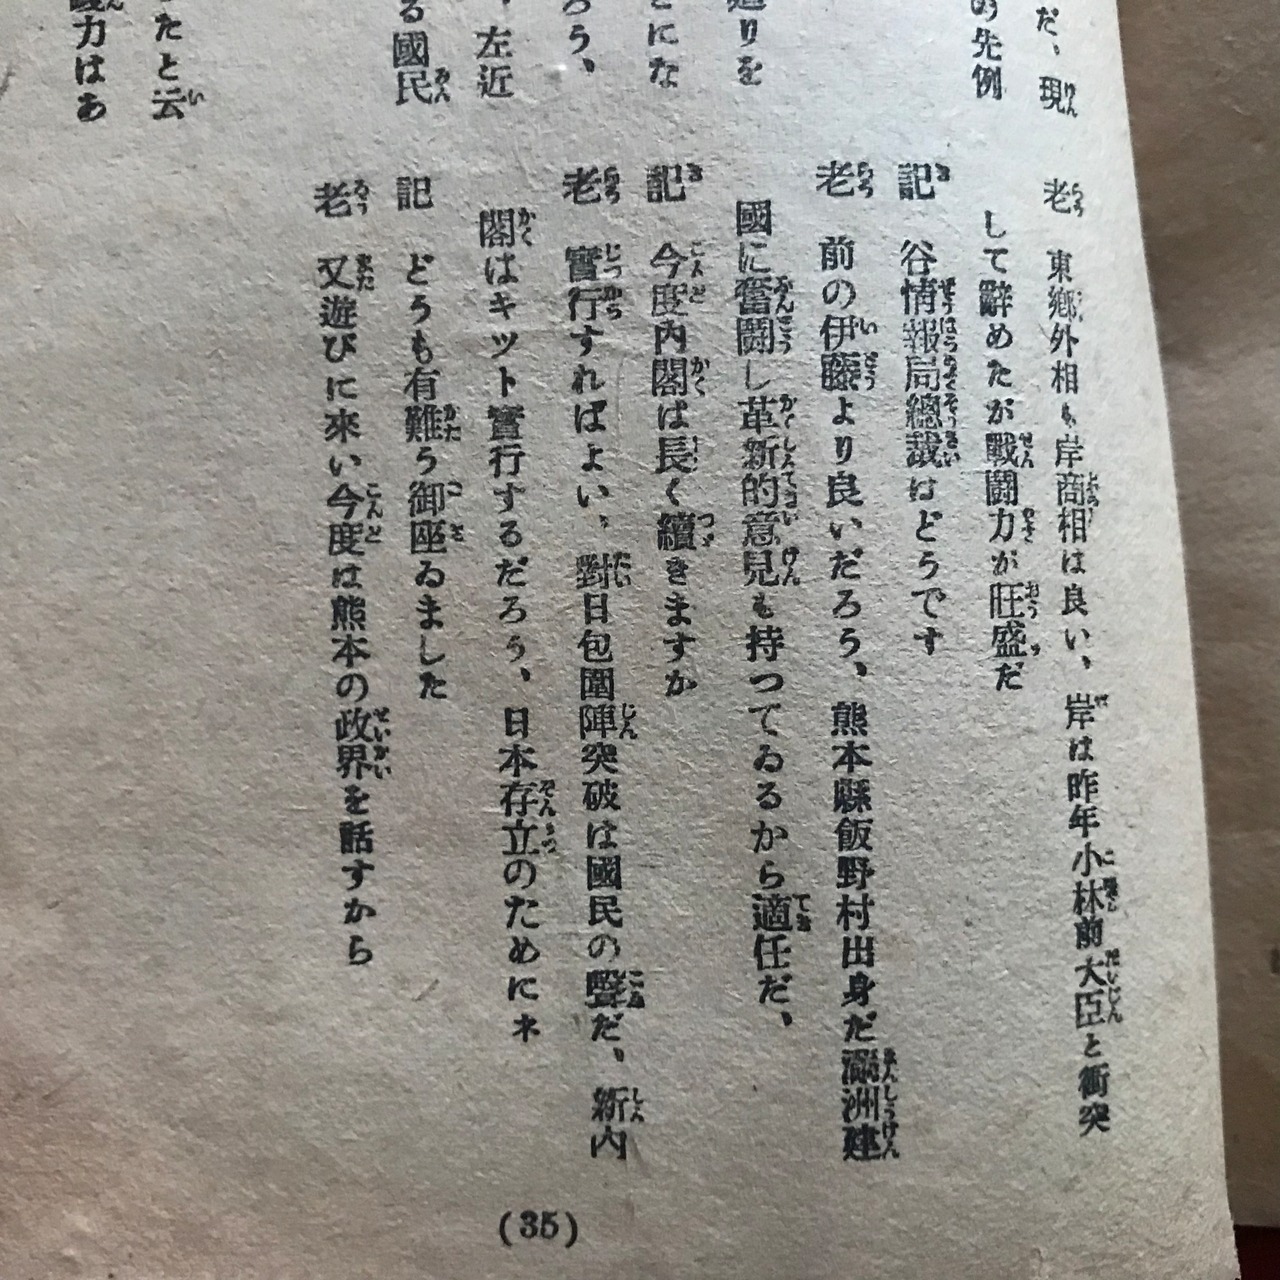 だ、現
の先例
造りを
とにな
ろう、
、左近
る國民
たと云
力はあ
老　東鄕外相も岸商相は良い、岸は昨年小林前大臣と衝突
して辭めたが戰鬪力が旺盛だ
記　谷情報局總裁はどうです
老　前の伊藤より良いだろう、熊本縣飯野村出身だ滿洲建
國に奮鬪し革新的意見も持つてゐるから適任だ、
記　今度內閣は長く續きますか
老　實行すればよい、對日包圍陣突破は國民の聲だ、新內
閣はキット實行するだろう、日本存立のためにネ
記　どうも有難う御座ゐました
老　又遊びに來い今度は熊本の政界を話すから
(35)